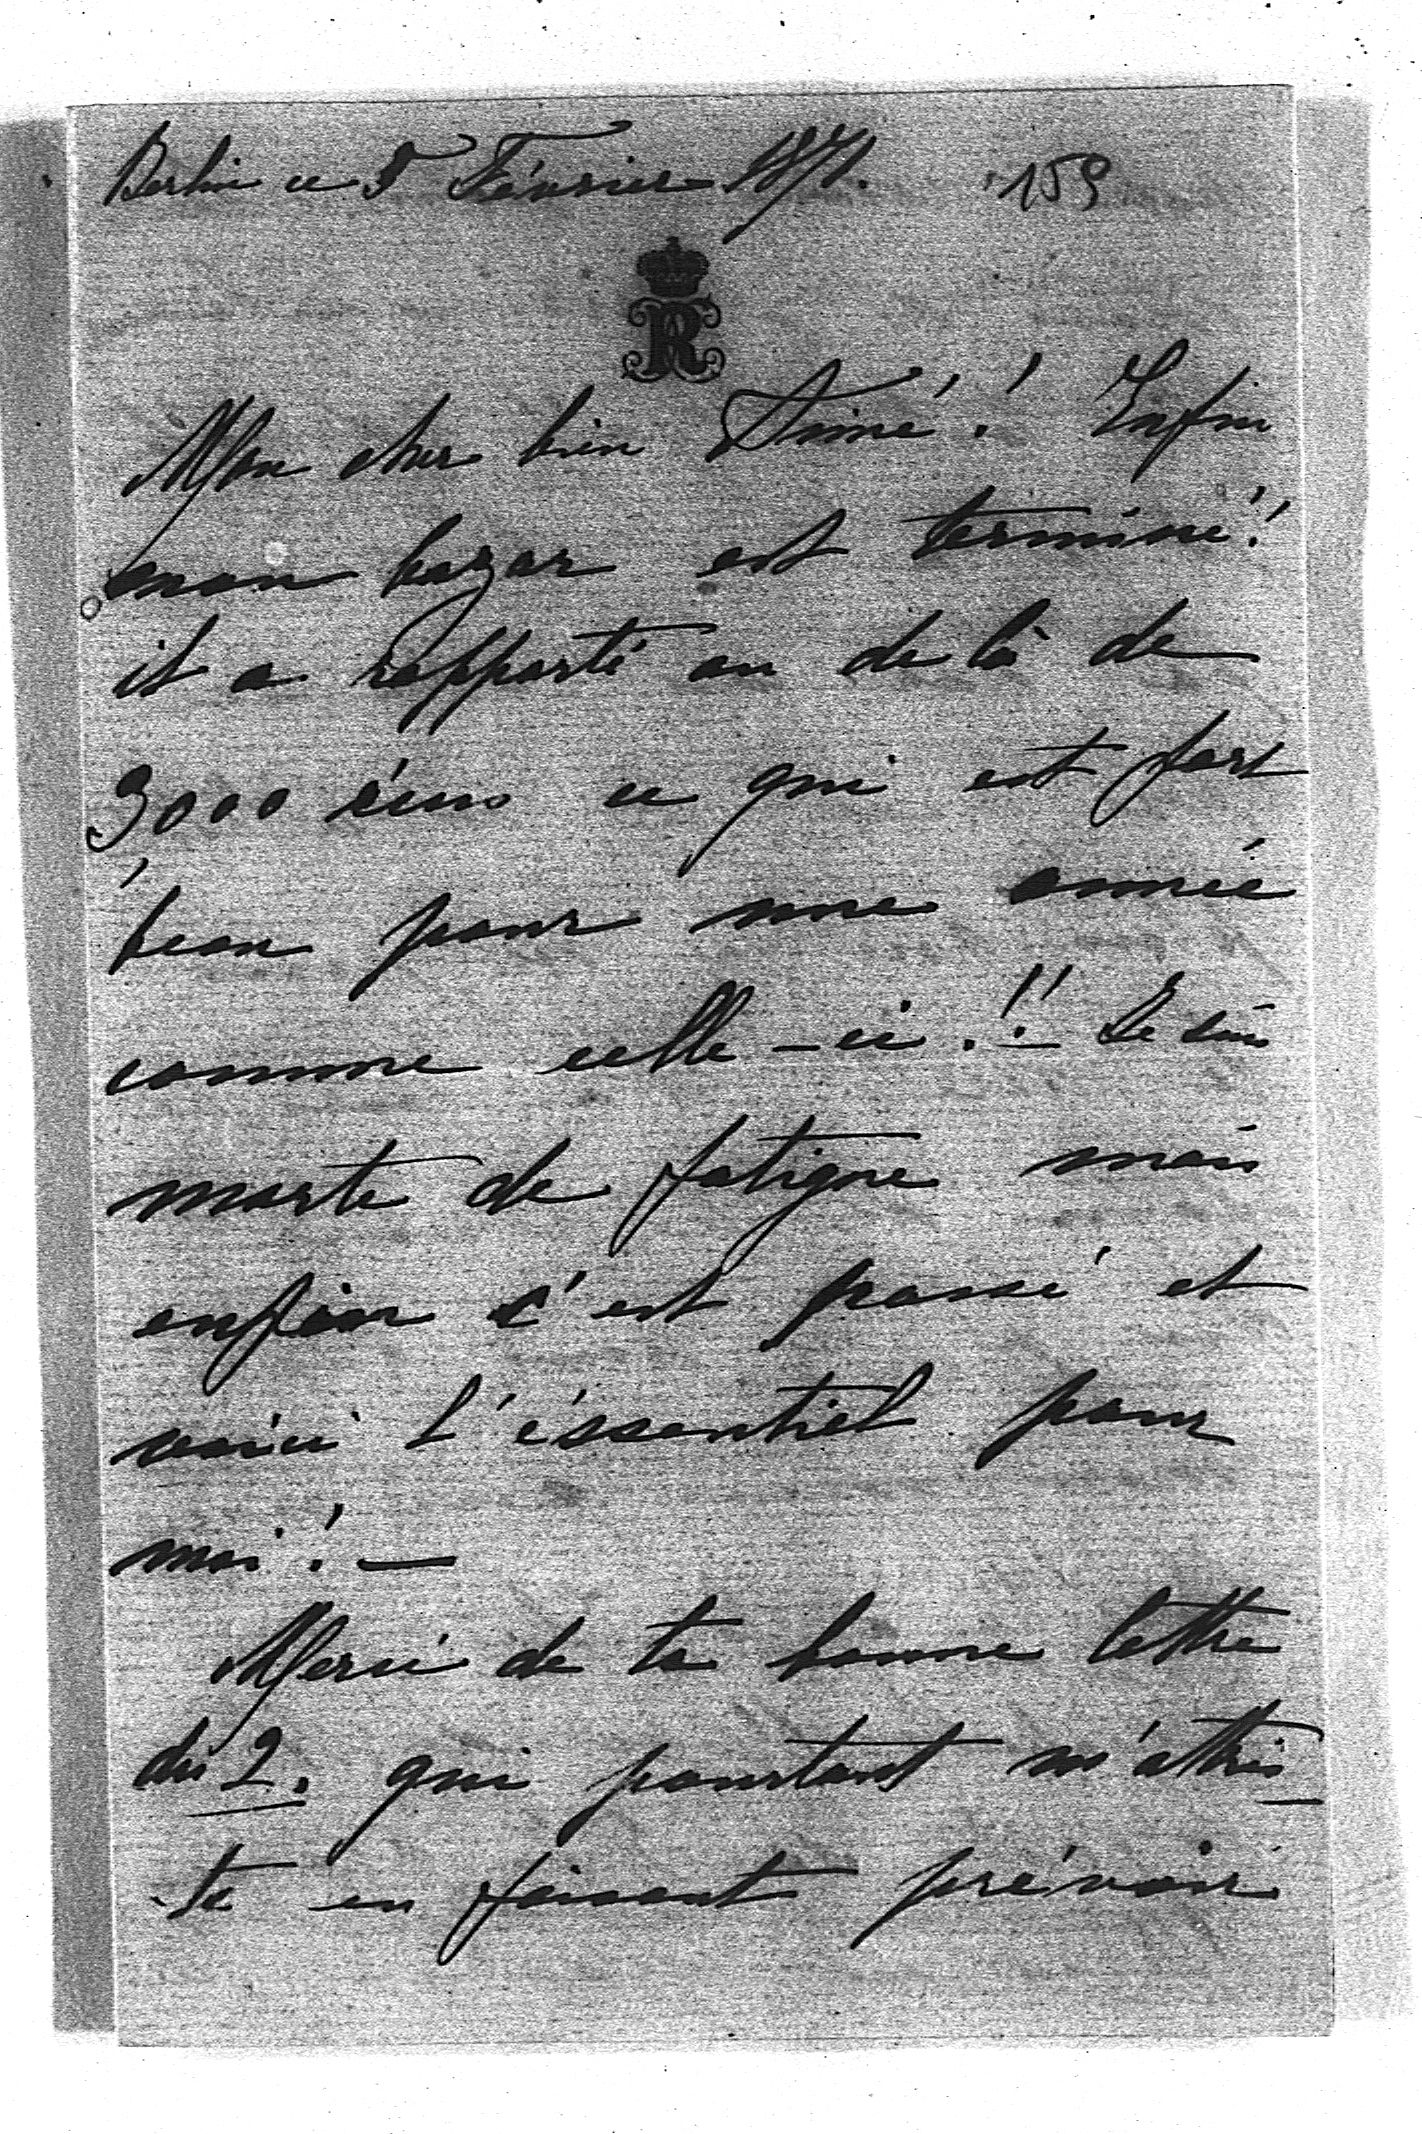 Berlin ce 5 Février 1871. 159
R
Mon cher bien Aimé! Enfin
mon bazar est terminé!
il a rapporté au de là de
3000 écus ce qui est fort
beau pour une année
comme celle-ci!! Je suis
morte de fatigue mais
enfin c'est passé et
voici l'éssentiel pour
moi! —
Merci de ta bonne lettre
du 2. qui pourtant m'attris
te en faisant prévoir